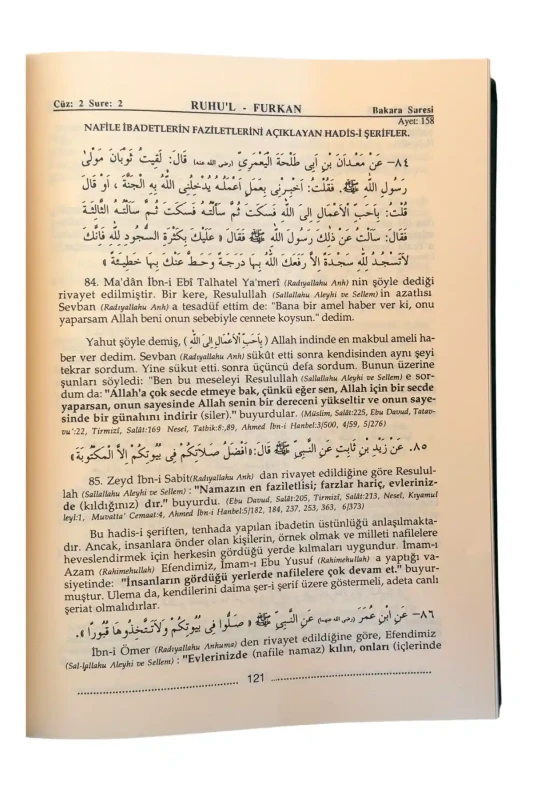 Cüz: 2 Sure: 2 RUHU'L - FURKAN Bakara Suresi
Ayet: 158
NAFİLE İBADETLERİN FAZİLETLERİNİ AÇIKLAYAN HADİS-İ ŞERİFLER.
٨٤- عَنْ مَعْدَانَ بْنِ أَبِي طَلْحَةَ الْيَعْمَرِيِّ (رضى الله عنه) قَالَ: لَقِيتُ ثَوْبَانَ مَوْلَى
رَسُولِ اللهِ ﷺ. فَقُلْتُ: أَخْبِرْنِي بِعَمَلٍ أَعْمَلُهُ يُدْخِلُنِي اللهُ بِهِ الْجَنَّةَ ، أَوْ قَالَ
قُلْتُ: بِأَحَبِّ الْأَعْمَالِ إِلَى اللهِ فَسَكَتَ ثُمَّ سَأَلْتُهُ فَسَكَتَ ثُمَّ سَأَلْتُهُ الثَّالِثَةَ
فَقَالَ: سَأَلْتُ عَنْ ذَلِكَ رَسُولَ اللهِ ﷺ فَقَالَ « عَلَيْكَ بِكَثْرَةِ السُّجُودِ لِلهِ فَإِنَّكَ
لَا تَسْجُدُ لِلهِ سَجْدَةً إِلَّا رَفَعَكَ اللهُ بِهَا دَرَجَةً وَحَطَّ عَنْكَ بِهَا خَطِيئَةً »
84. Ma'dân İbn-i Ebî Talhatel Ya'merî (Radıyallahu Anh) nin şöyle dediği
rivayet edilmiştir. Bir kere, Resulullah (Sallallahu Aleyhi ve Sellem) in azatlısı
Sevban (Radıyallahu Anh) a tesadüf ettim de: "Bana bir amel haber ver ki, onu
yaparsam Allah beni onun sebebiyle cennete koysun." dedim.
Yahut şöyle demiş, (بِأَحَبِّ الْأَعْمَالِ إِلَى اللهِ) Allah indinde en makbul ameli ha-
ber ver dedim. Sevban (Radıyallahu Anh) sükût etti sonra kendisinden aynı şeyi
tekrar sordum. Yine sükut etti. sonra üçüncü defa sordum. Bunun üzerine
şunları söyledi: "Ben bu meseleyi Resulullah (Sallallahu Aleyhi ve Sellem) e sor-
dum da: "Allah'a çok secde etmeye bak, çünkü eğer sen, Allah için bir secde
yaparsan, onun sayesinde Allah senin bir dereceni yükseltir ve onun saye-
sinde bir günahını indirir (siler)." buyurdular. (Müslim, Salât:225, Ebu Davud, Tatav-
vu':22, Tirmizî, Salât:169 Neseî, Tatbik:8:,89, Ahmed İbn-i Hanbel:3/500, 4/59, 5/276)
٨٥. عَنْ زَيْدِ بْنِ ثَابِتٍ عَنِ النَّبِيِّ ﷺ قَالَ: «أَفْضَلُ صَلَاتِكُمْ فِي بُيُوتِكُمْ إِلَّا الْمَكْتُوبَةَ»
85. Zeyd İbn-i Sabit(Radıyallahu Anh) dan rivayet edildiğine göre Resulul-
lah (Sallallahu Aleyhi ve Sellem) : "Namazın en faziletlisi; farzlar hariç, evleriniz-
de (kıldığınız) dır." buyurdu. (Ebu Davud, Salât:205, Tirmizî, Salât:213, Neseî, Kıyamul
leyl:1, Muvatta' Cemaat:4, Ahmed İbn-i Hanbel:5/182, 184, 237, 253, 363, 6/373)
Bu hadis-i şeriften, tenhada yapılan ibadetin üstünlüğü anlaşılmakta-
dır. Ancak, insanlara önder olan kişilerin, örnek olmak ve milleti nafilelere
heveslendirmek için herkesin gördüğü yerde kılmaları uygundur. İmam-ı
Azam (Rahimehullah) Efendimiz, İmam-ı Ebu Yusuf (Rahimehullah) a yaptığı va-
siyetinde: "İnsanların gördüğü yerlerde nafilelere çok devam et." buyur-
muştur. Ulema da, kendilerini daima şer-i şerif üzere göstermeli, adeta canlı
şeriat olmalıdırlar.
٨٦- عَنِ ابْنِ عُمَرَ (رضى الله عنهما) عَنِ النَّبِيِّ ﷺ « صَلُّوا فِي بُيُوتِكُمْ وَلَا تَتَّخِذُوهَا قُبُورًا ».
İbn-i Ömer (Radıyallahu Anhuma) den rivayet edildiğine göre, Efendimiz
(Sal-lallahu Aleyhi ve Sellem) : "Evlerinizde (nafile namaz) kılın, onları (içlerinde
121